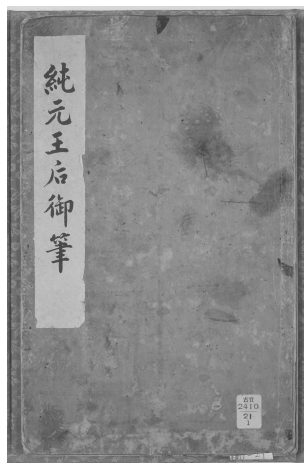 純元王后御筆
古貴
2410
21
1